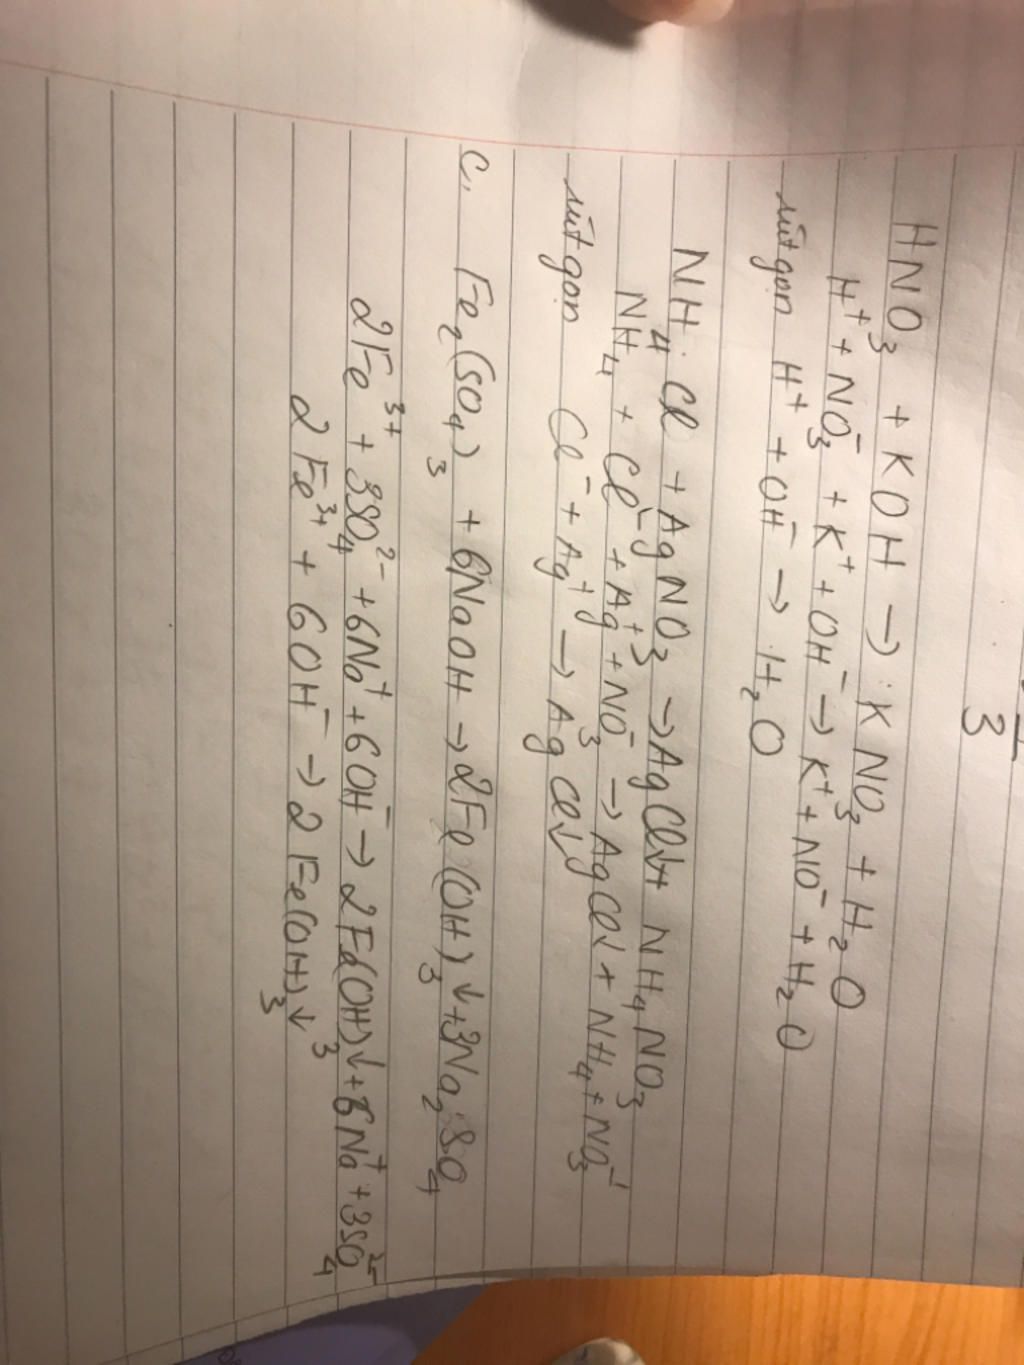 3
HNO₃ + KOH → KNO₃ + H₂O
H⁺ + NO₃⁻ + K⁺ + OH⁻ → K⁺ + NO₃⁻ + H₂O
rút gọn H⁺ + OH⁻ → H₂O
NH₄Cl + AgNO₃ → AgCl↓ + NH₄NO₃
NH₄⁺ + Cl⁻ + Ag⁺ + NO₃⁻ → AgCl↓ + NH₄⁺ NO₃⁻
rút gọn Cl⁻ + Ag⁺ → AgCl↓
c. Fe₂(SO₄)₃ + 6NaOH → 2Fe(OH)₃↓ + 3Na₂SO₄
2Fe³⁺ + 3SO₄²⁻ + 6Na⁺ + 6OH⁻ → 2Fe(OH)₃↓ + 6Na⁺ + 3SO₄²⁻
2Fe³⁺ + 6OH⁻ → 2Fe(OH)₃↓